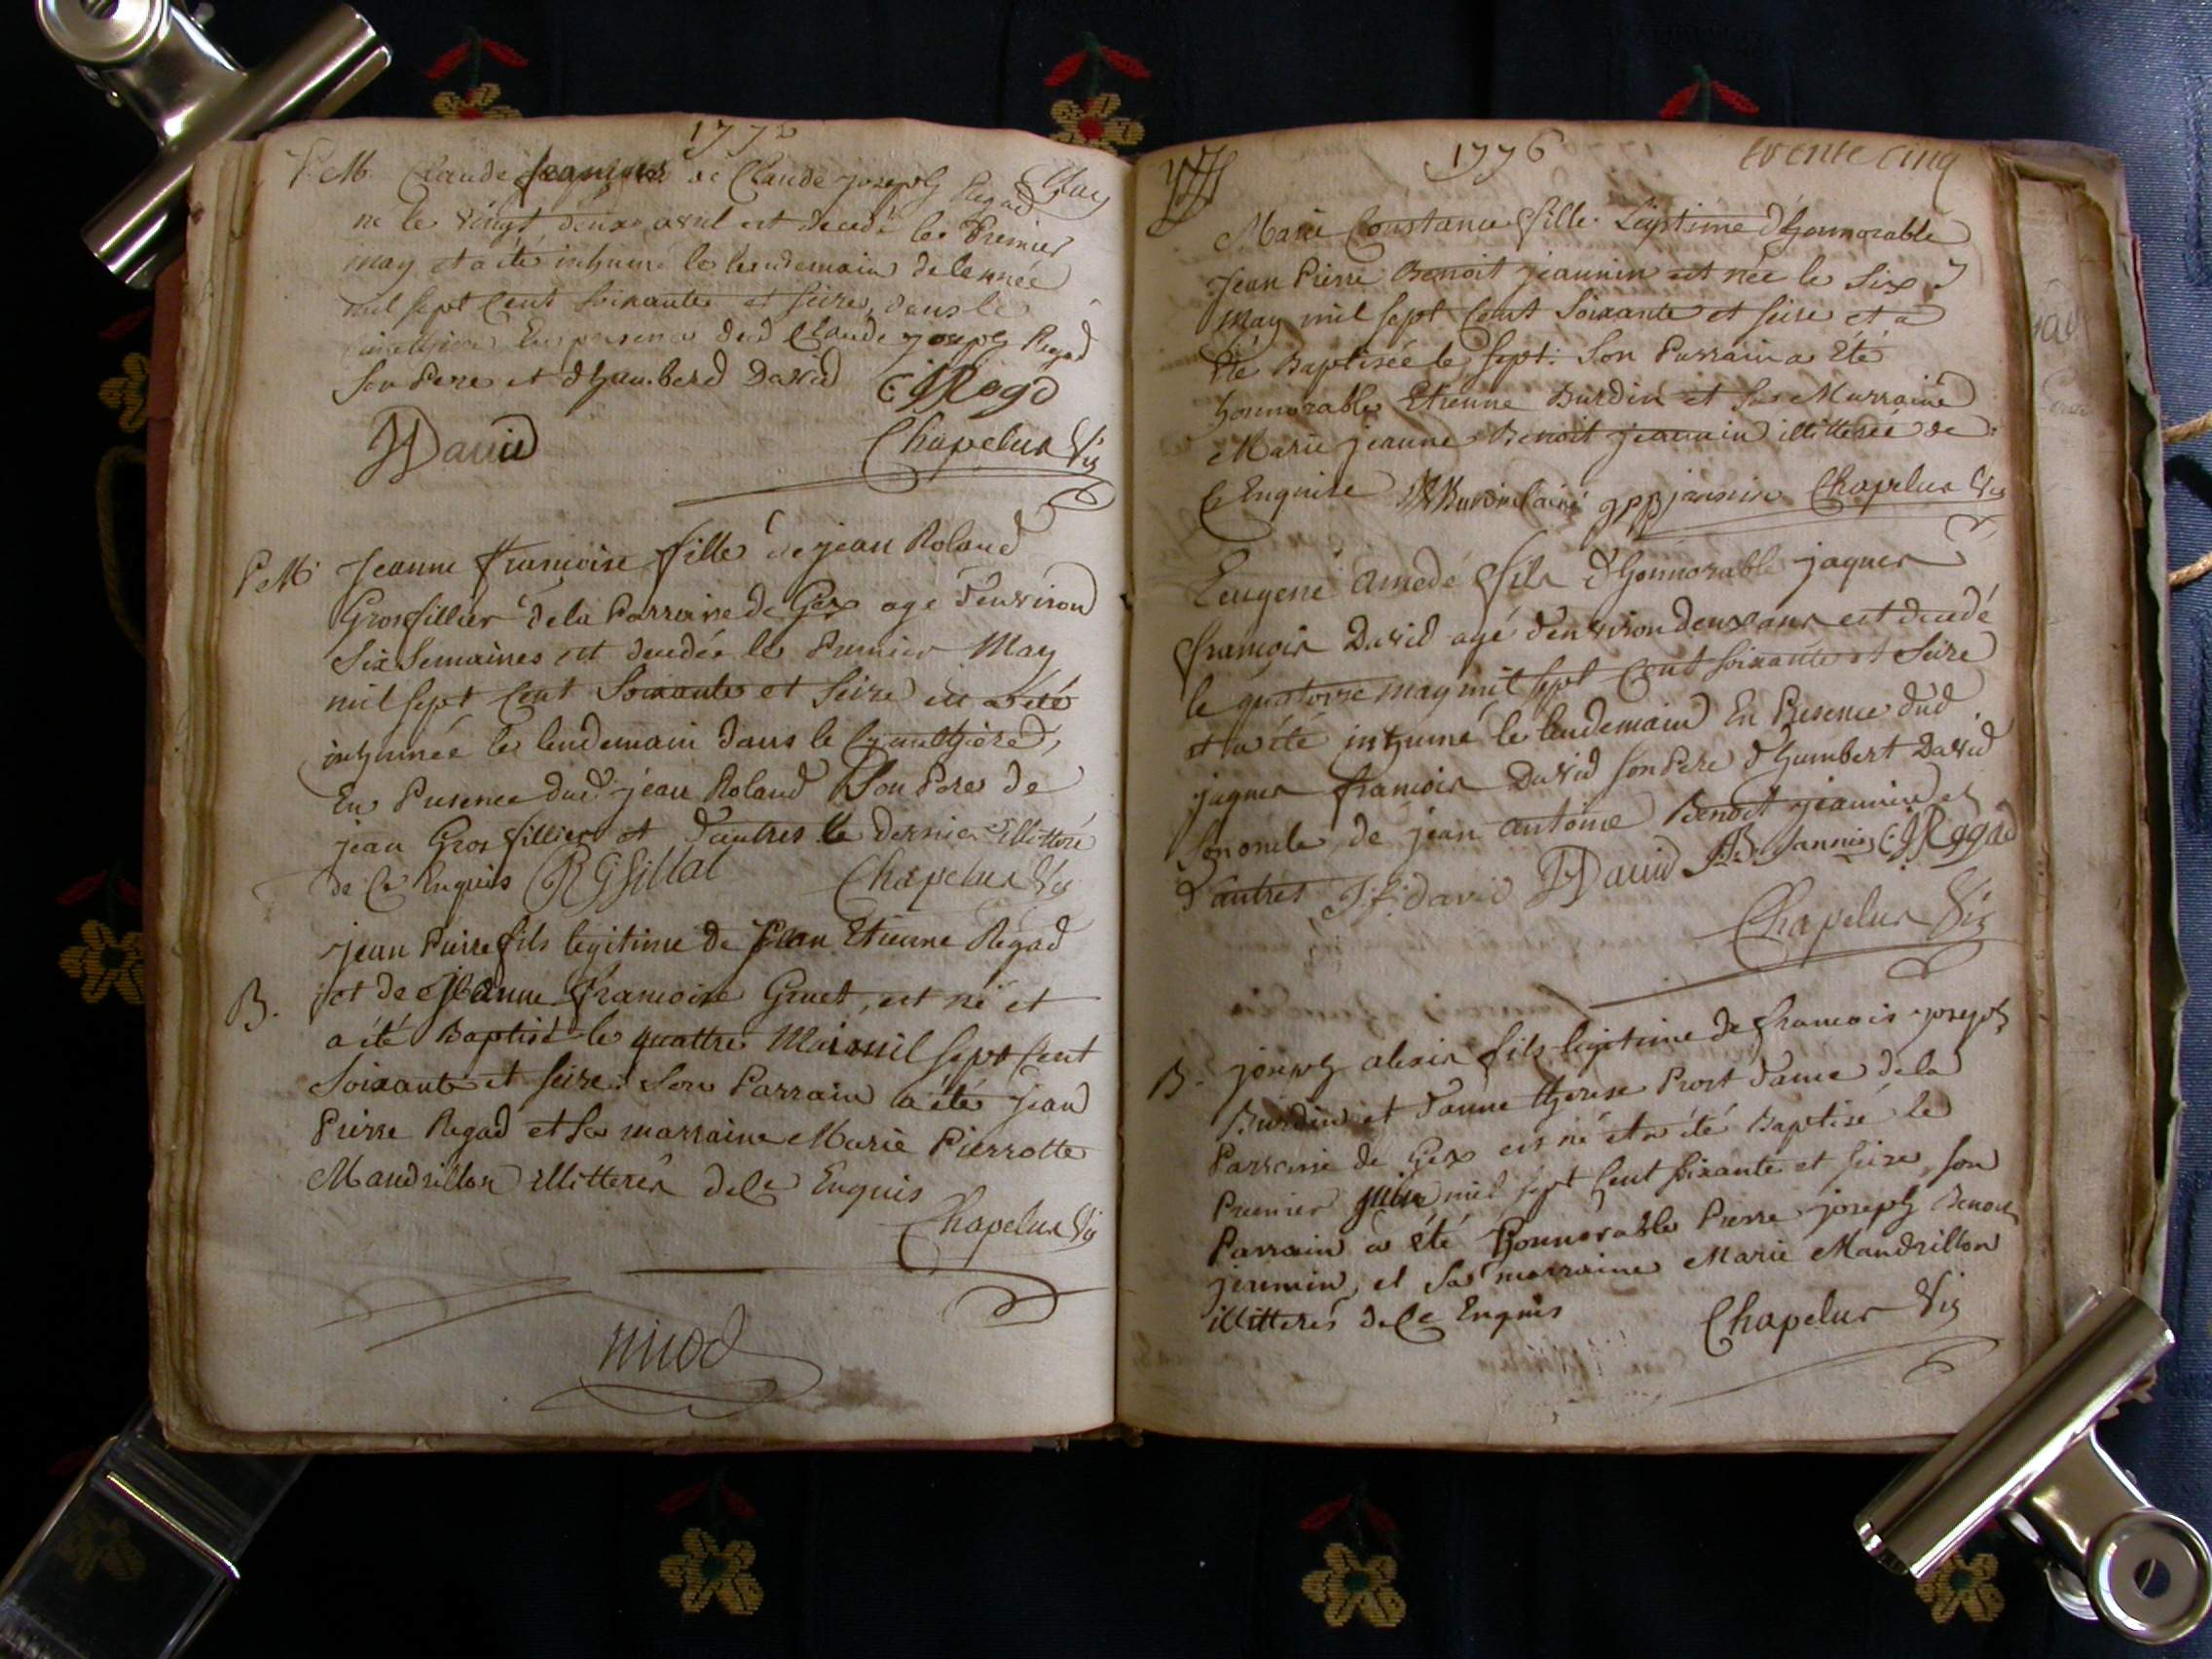 1776
P. M. Claude françois de Claude joseph Regad
May
né le vingt deux avril est decedé le Premier
may et a été inhumé le lendemain de lannée
mil sept Cent soixante et seize, dans le
cimethiere En presence dud Claude joseph Regad
son Pere et d'humberd David CJRegd
HDauid
Chapelux Vic
P. M. Jeanne françoise fille de jean Roland
Grosfillier de la Parroisse de Gex age d'environ
Six Semaines est decedée le Premier May
mil sept Cent Soixante et seize et a été
inhumée le lendemain dans le Cymethiere,
En Presence dud. jean Roland Son Pere de
jean Grosfillier et d'autres le dernier illitteré
de Ce Enquis RGfillat Chapelux Vic
jean Pierre fils legitime de Jean Etienne Regad
B. et de Jeanne françoise Gruet, est né et
a été Baptisé le quattre Mai mil sept Cent
Soixante et seize. Son Parrain a été jean
Pierre Regad et sa marraine Marie Pierrotte
Mandrillon illitterés de Ce Enquis
Chapelux Vic
niod
1776
trente cinq
Marie Constance fille Legitime d'honnorable
Jean Pierre Benoit jeannin est née le Six
may mil sept Cent Soixante et seize et a
été Baptisée le sept. Son Parrain a Eté
honnorable Etienne Burdin et sa Marraine
Marie jeanne Benoit jeannin illitterée de
Ce Enquise EBurdin lainé JPBjannin Chapelux Vic
Eeugene amedé fils d'honnorable jaques
françois David agé d'environ deux ans est decedé
le quatorze may mil sept Cent soixante et seize
et a été inhumé le lendemain En Presence dud
jaques françois David son Pere d'humbert David
son oncle de jean antoine Benoit jeannin et
d'autres J.f. david HDauid JAB. Jannin CJRegad
Chapelux Vic
B. joseph alexis fils legitime de françois joseph
Burdin et d'anne therese Prost dame de la
Parroisse de Gex est né et a été Baptisé le
Premier juin mil sept Cent soixante et seize, son
Parrain a été honnorable Pierre joseph Benoit
jeannin, et sa marraine Marie Mandrillon
illitterés de Ce Enquis
Chapelux Vic